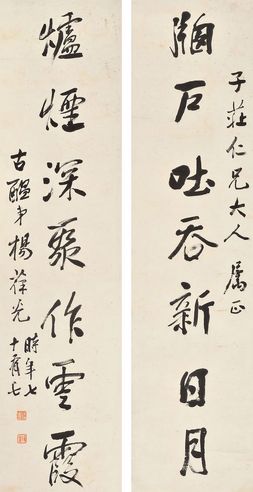 子莊仁兄大人屬正
牖戶吐吞新日月
爐煙深聚作雲霞
古醞弟楊葆光
時年七
十有七